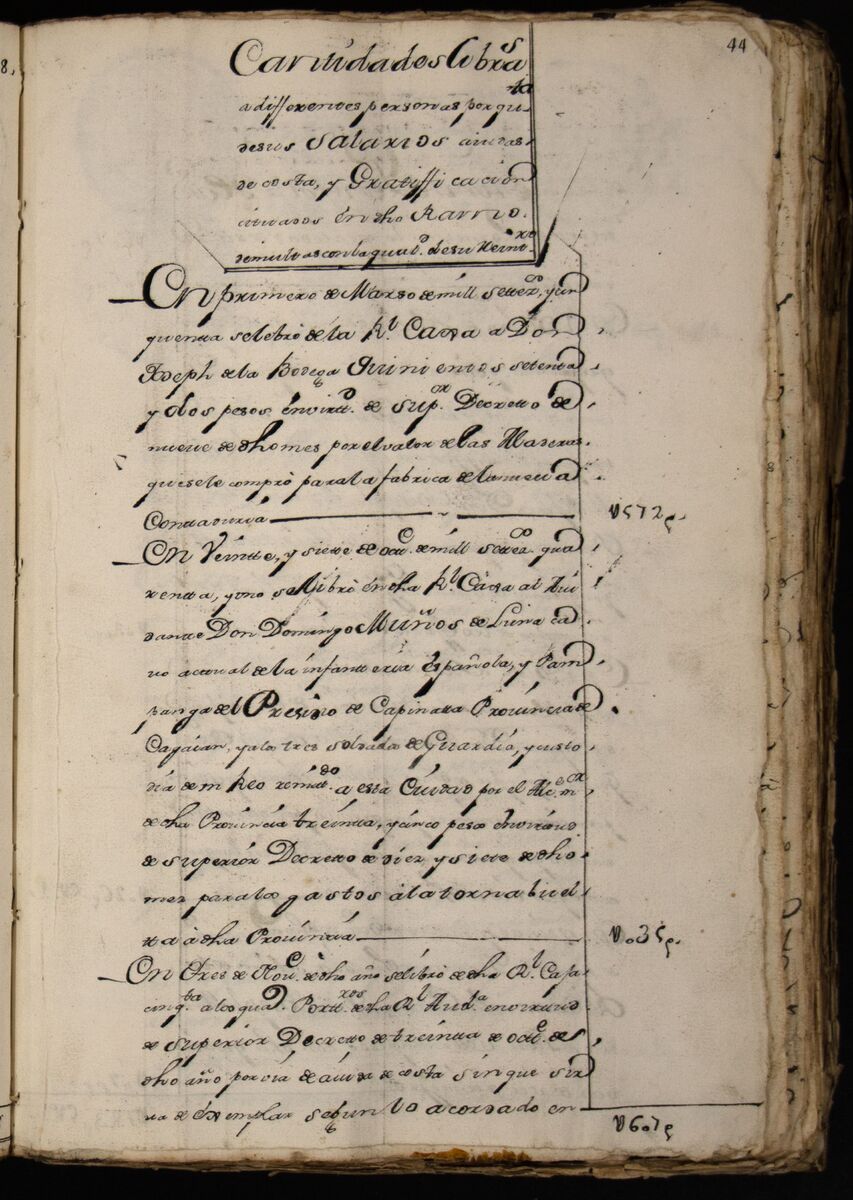 44
Cantidades libr.s
a differentes personas por qu.ta
de sus Salarios aiudas
de costa, y Gratifficacion
situados en dho Ramo
de multas con la qual.d de su Reint.xo
En primero de Marzo de mill settez.os y cin
quenta se libro de la R.l Caxa a Don
Joseph de la Bodega Quinientos setenta
y dos pesos en virtt.d de sup.or Decretto de
nueve de dho mes por el valor de las Maderas
que se le compró para la fabrica de la nueva
Contaduria U572p.
En Veinte, y siette de oct.e de mill settez.os qua
renta, y uno se libró en dha R.l Caxa al Aiu
dante Don Domingo Muños de Luna ca
vo actual de la infantteria Española, y Pam
panga del Presidio de Capinatta Provincia de
Cagaian, y a los tres soldados de Guardia, y custo
dia de un Reo remitt.do a esta Ciudad por el Alc.e m.or
de dha Provincia treinta, y cinco pesos en virtud
de superior Decretto de diez y siete de dho
mes para los gastos a la torna buel
ta a dha Provincia U035p.
En tres de Nov.e de dho año se libró de dha R.l Caxa
cinq.ta a los qua.o Portt.ros de dha R.l Aud.a en virtud
de superior Decretto de treinta de oct.e de
dho año por via de aiuda de costa sin que sir
va de exemplar segun lo acordado en
U607p